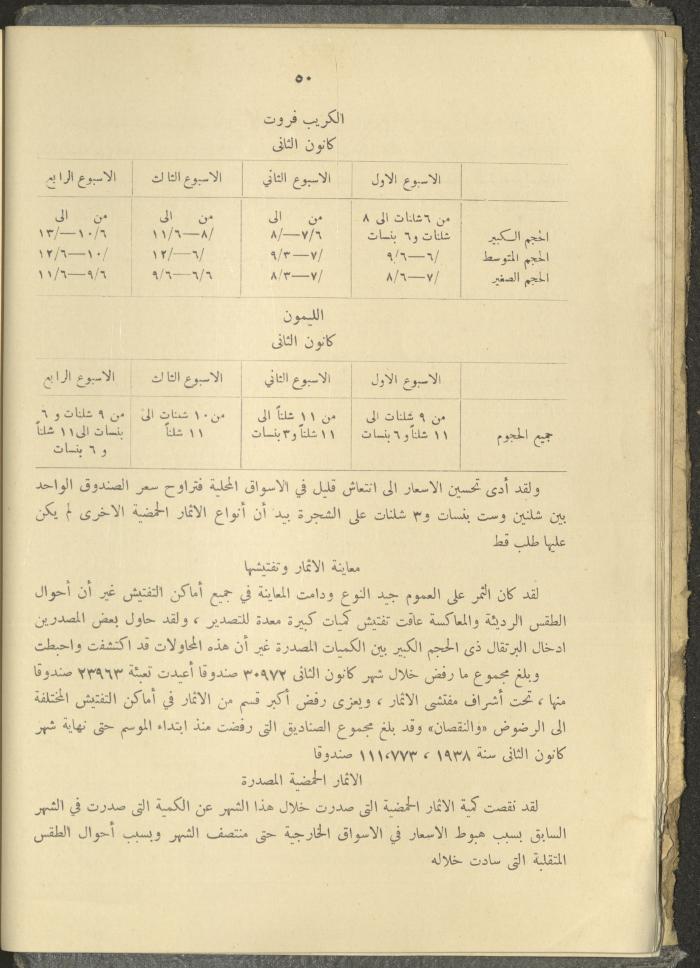 ٥٠
الكريب فروت
كانون الثانى
الاسبوع الاول الاسبوع الثاني الاسبوع الثالث الاسبوع الرابع
من ٦ شلنات الى ٨ من الى من الى من الى
الحجم الكبير شلنات و٦ بنسات ٧/٦—/٨ /٨—١١/٦ ١٠/٦—/١٣
الحجم المتوسط /٦—٩/٦ /٧—٩/٣ /٦—/١٢ /١٠—١٢/٦
الحجم الصغير /٧—٨/٦ /٧—٨/٣ ٦/٦—٩/٦ ٩/٦—١١/٦
الليمون
كانون الثانى
الاسبوع الاول الاسبوع الثاني الاسبوع الثالث الاسبوع الرابع
من ٩ شلنات الى من ١١ شلناً الى من ١٠ شلنات الى من ٩ شلنات و ٦
جميع الحجوم ١١ شلناً و ٦ بنسات ١١ شلناً و٣ بنسات ١١ شلناً بنسات الى ١١ شلناً
و ٦ بنسات
ولقد أدى تحسين الاسعار الى انتعاش قليل في الاسواق المحلية فتراوح سعر الصندوق الواحد
بين شلنين وست بنسات و٣ شلنات على الشجرة بيد أن أنواع الاثمار الحمضية الاخرى لم يكن
عليها طلب قط
معاينة الاثمار وتفتيشها
لقد كان الثمر على العموم جيد النوع ودامت المعاينة في جميع أماكن التفتيش غير أن أحوال
الطقس الرديئة والمعاكسة عاقت تفتيش كميات كبيرة معدة للتصدير ، ولقد حاول بعض المصدرين
ادخال البرتقال ذى الحجم الكبير بين الكميات المصدرة غير أن هذه المحاولات قد اكتشفت واحبطت
وبلغ مجموع ما رفض خلال شهر كانون الثانى ٣٠٩٧٢ صندوقا أعيدت تعبئة ٢٣٩٦٣ صندوقا
منها ، تحت أشراف مفتشى الاثمار ، ويعزى رفض أكبر قسم من الاثمار في أماكن التفتيش المختلفة
الى الرضوض «والنقصان» وقد بلغ مجموع الصناديق التى رفضت منذ ابتداء الموسم حتى نهاية شهر
كانون الثانى سنة ١٩٣٨ ، ١١١،٧٧٣ صندوقا
الاثمار الحمضية المصدرة
لقد نقصت كمية الاثمار الحمضية التى صدرت خلال هذا الشهر عن الكمية التى صدرت في الشهر
السابق بسبب هبوط الاسعار في الاسواق الخارجية حتى منتصف الشهر وبسبب أحوال الطقس
المتقلبة التى سادت خلاله